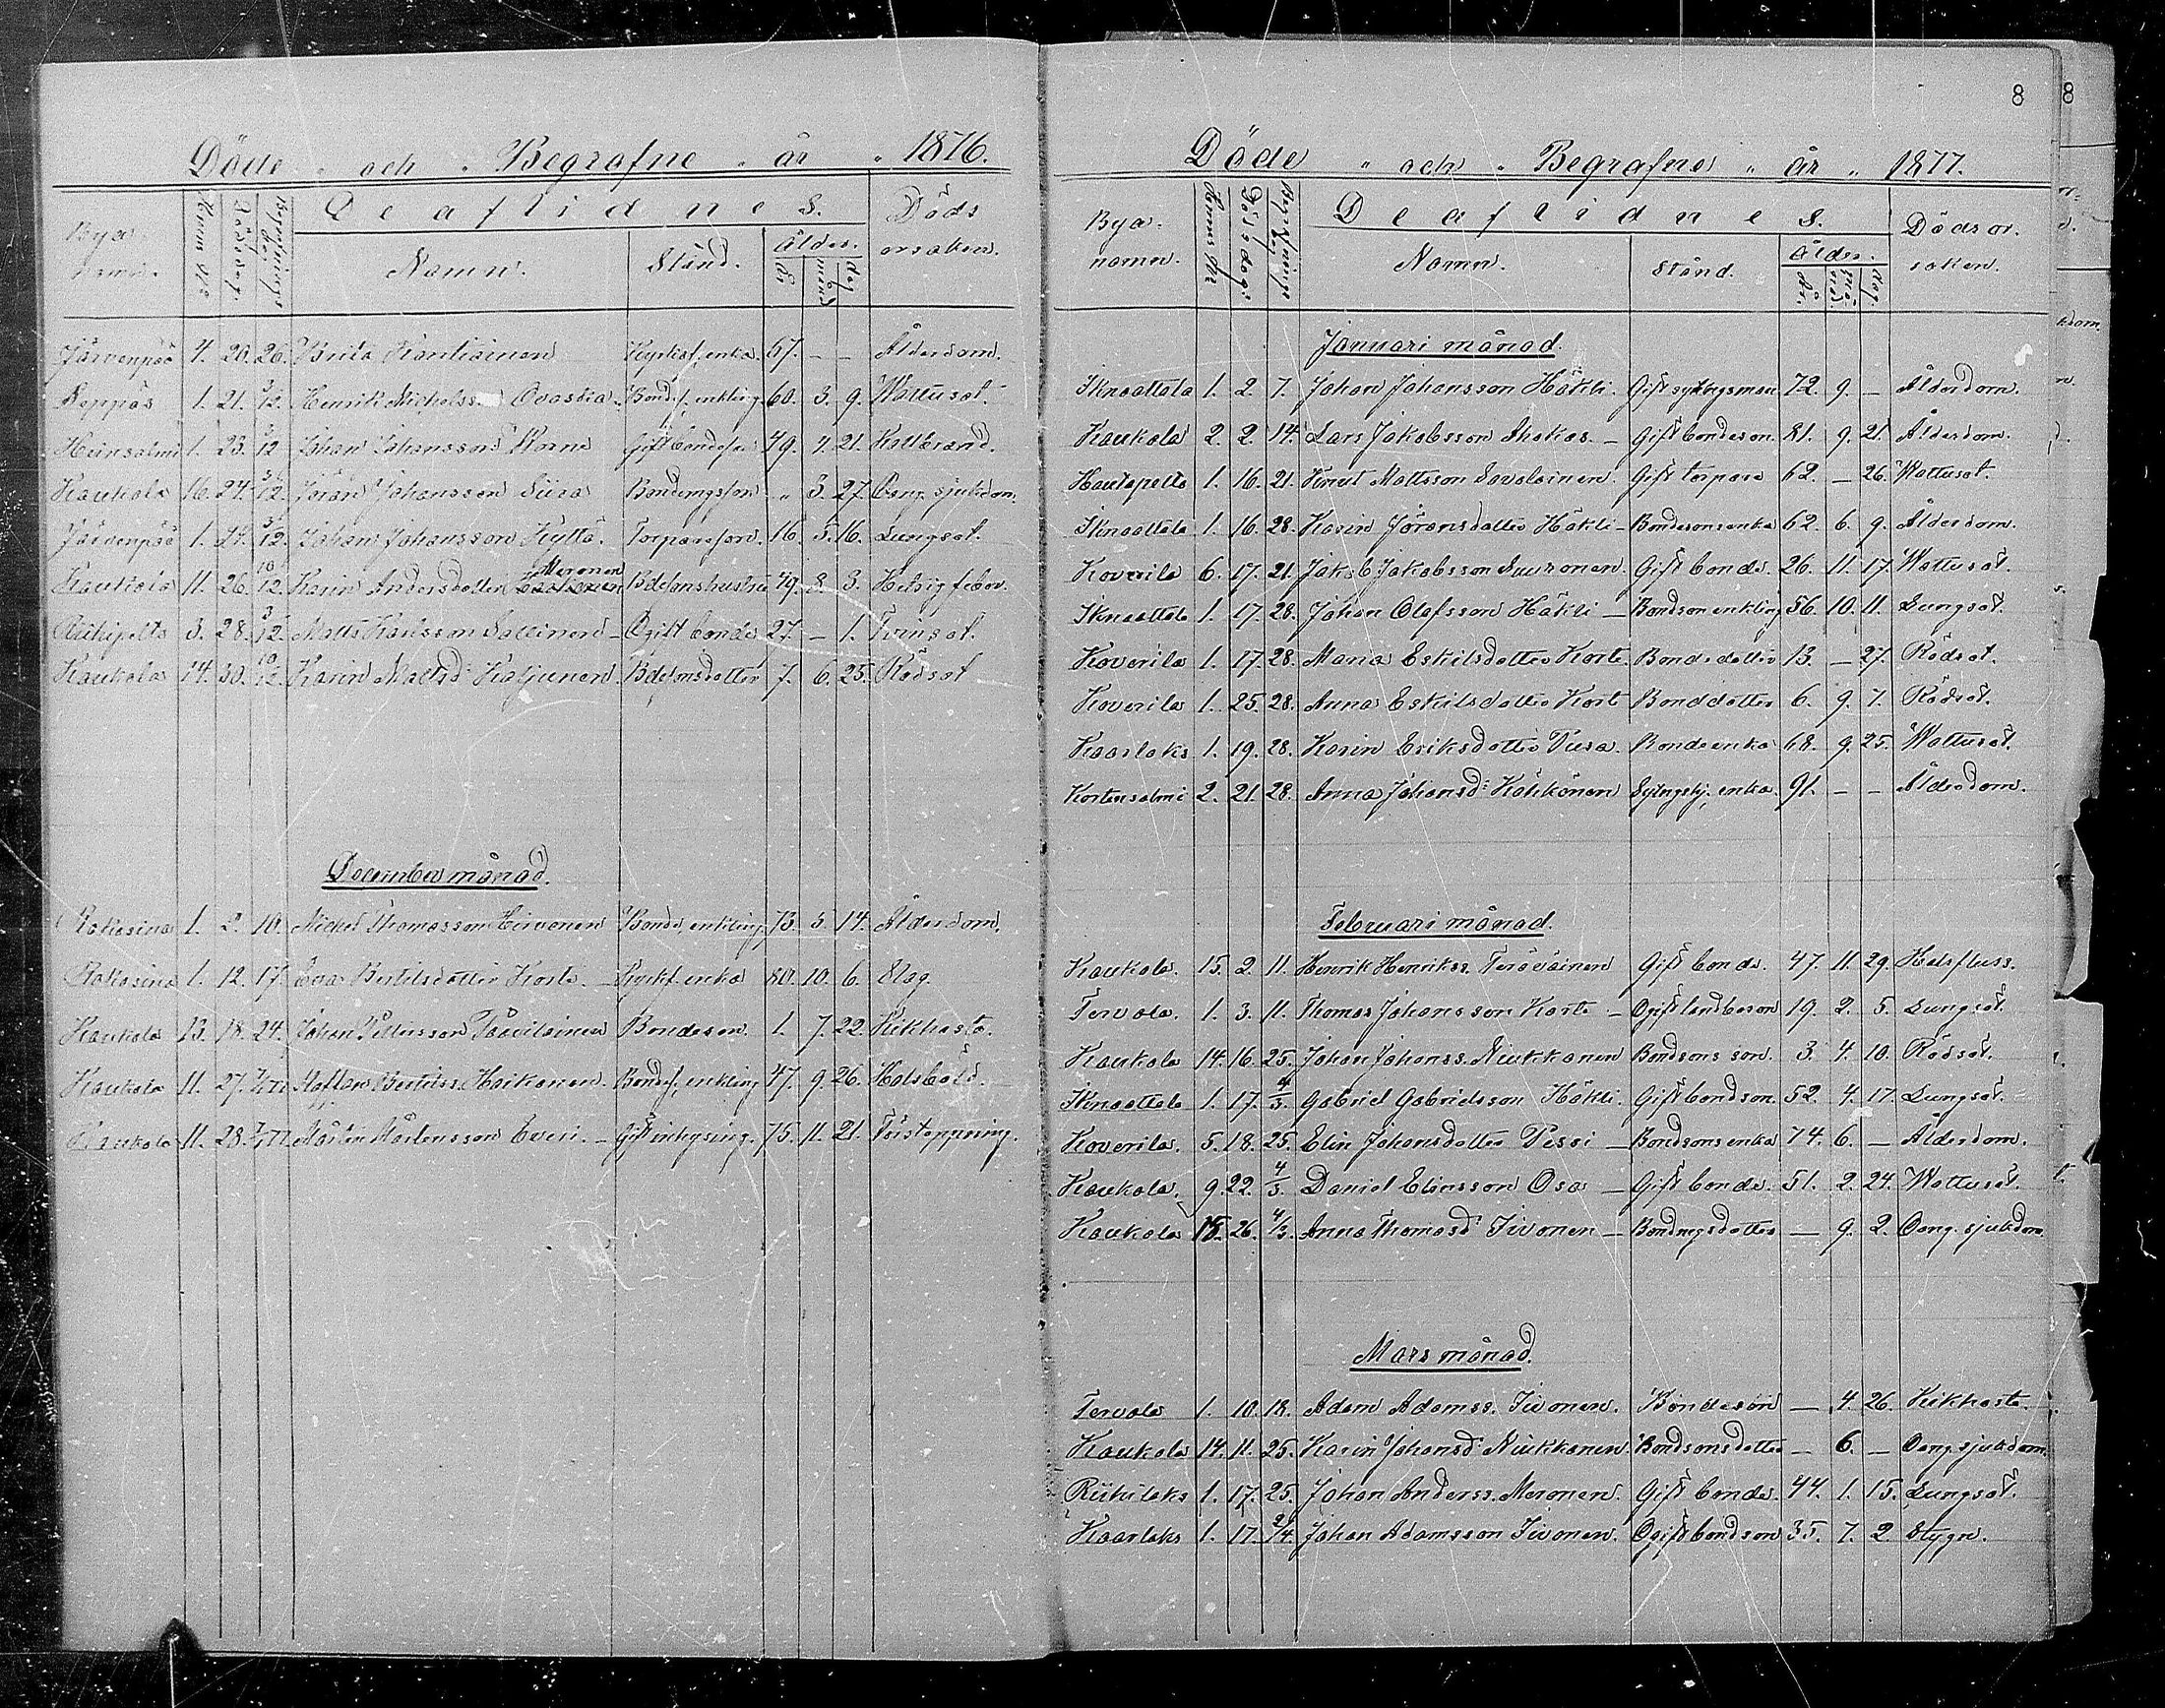 Döde och Begrafne år 1876.
Bya namn. Hemms No Dödsdag. Begrafnings dag Deaflidnes. Namn. Stånd. Ålder. år månad dag Dödsorsaken.
Järvenpää 4. 20. 26. Brita Kontiainen Kyrkof. enka. 67. — — Ålderdom.
1. 21. 3/12. Henrik Michelss. Ovaska Bondes, enkling 60. 3. 9. Wattusot.
Heinsalmi 1. 23. 3/12 Johan Johansson Worne Gift bondeson 49. 4. 21. Kallbrand.
Kaukola 16. 24. 3/12. Jöran Johansson Siira Bondemågs son " 3. 27. Oang. sjukdom.
Järvenpää 1. 24. 3/12. Johan Johansson Kyttä. Torpareson. 16. 5. 16. Lungsot.
Kaukola 11. 26. 10/12. Karin Andersdotter Meronen Bdesonshustru 49. 8. 3. Hetsig feber.
Riihipelto 3. 28. 3/12. Matts Karlsson Sallinen — Ogift bonde 27. — 1. Tvinsot.
Kaukola 14. 30. 10/12. Karin Mattsd: Kaljunen. Bdesonsdotter 7. 6. 25. Rödsot
December månad.
Rokosina 1. 2. 10. Michel Thomasson Hirvonen Bonde, enkling 73. 5. 14. Ålderdom.
Rokosina 1. 12. 17. Eva Bertilsdotter Korte. — enka 80. 10. 6. Slag.
Kaukola 13. 18. 24. Johan Pettersson Päivilainen Bondeson. 1. 7. 22. Kikhosta.
Kaukola 11. 27. Staffan Haikonen. Bondes, enkling 47. 9. 26. Halsböld.
Kaukola 11. 28. Mårten Mårtensson Everi. — Gift inhysing. 75. 11. 21. Förstoppning.
8
Döde och Begrafne år 1877.
Bya-namn. Hemms No Dödsdag. Begrafnings dag Deaflidnes. Namn. Stånd. Ålder. år. månad. dag. Dödsorsaken.
Januari månad.
Iknoattala 1. 2. 7. Johan Johansson Häkli. Gift sytningsman 72. 9. — Ålderdom.
Kaukola 2. 2. 14. Lars Jakobsson Ahokas. — Gift bondeson. 81. 9. 21. Ålderdom.
Hautapelto 1. 16. 21. Knut Mattsson Savolainen. Gift torpare 62. — 26. Wattusot.
Iknoattala 1. 16. 28. Karin Jöransdotter Häkli — Bondesonsenka 62. 6. 9. Ålderdom.
Koverila 6. 17. 21. Jakob Jakobsson Auronen. Gift bonde. 26. 11. 17. Wattusot.
Iknoattala 1. 17. 28. Johan Olofsson Häkli — Bondson enkling 56. 10. 11. Lungsot.
Koverila 1. 17. 28. Maria Eskilsdotter Korte. Bondedotter 13. — 27. Rödsot.
Koverila 1. 25. 28. Anna Eskilsdotter Kort Bonddotter 6. 9. 7. Rödsot.
Kaarlaks 1. 19. 28. Karin Eriksdotter Tiusa. Bondeenka 68. 9. 25. Wattusot.
Kortensalmi 2. 21. 28. Anna Johansd: Kähkönen enka. 91. — — Ålderdom.
Februari månad.
Kaukola. 15. 2. 11. Henrik Henrikss. Teräväinen Gift bonde. 47. 11. 29. Halsfluss.
Tervola. 1. 3. 11. Thomas Johansson Korte — Ogift landboson 19. 2. 5. Lungsot.
Kaukola 14. 16. 25. Johan Johanss. Niukkanen Bondsons son. 3. 4. 10. Rödsot.
Iknoattala 1. 17. 4/3. Gabriel Gabrielsson Häkli. Gift bondson. 52. 4. 17. Lungsot.
Koverila. 5. 18. 25. Elin Johansdotter Pessi — Bondsonsenka 74. 6. — Ålderdom.
Kaukola. 9. 22. 4/3. Daniel Eliasson Osa — Gift bonde. 51. 2. 24. Wattusot.
Kaukola 15. 26. 4/3. Anna Thomasd: Iivonen — Bondmgsdotter — 9. 2. Oang. sjukdom.
Mars månad.
Tervola 1. 10. 18. Adam Adamss. Iivonen. Bondeson — 4. 26. Kikhosta.
Kaukola 14. 11. 25. Karin Johansd: Niukkanen. Bondsonsdotter — 6. — Oang. sjukdom.
Riihilaks 1. 17. 25. Johan Anderss. Meronen. Gift bonde. 44. 1. 15. Lungsot.
Kaarlaks 1. 17. 2/4. Johan Adamsson Iivonen. Ogift bondson 35. 7. 2. Stygn.